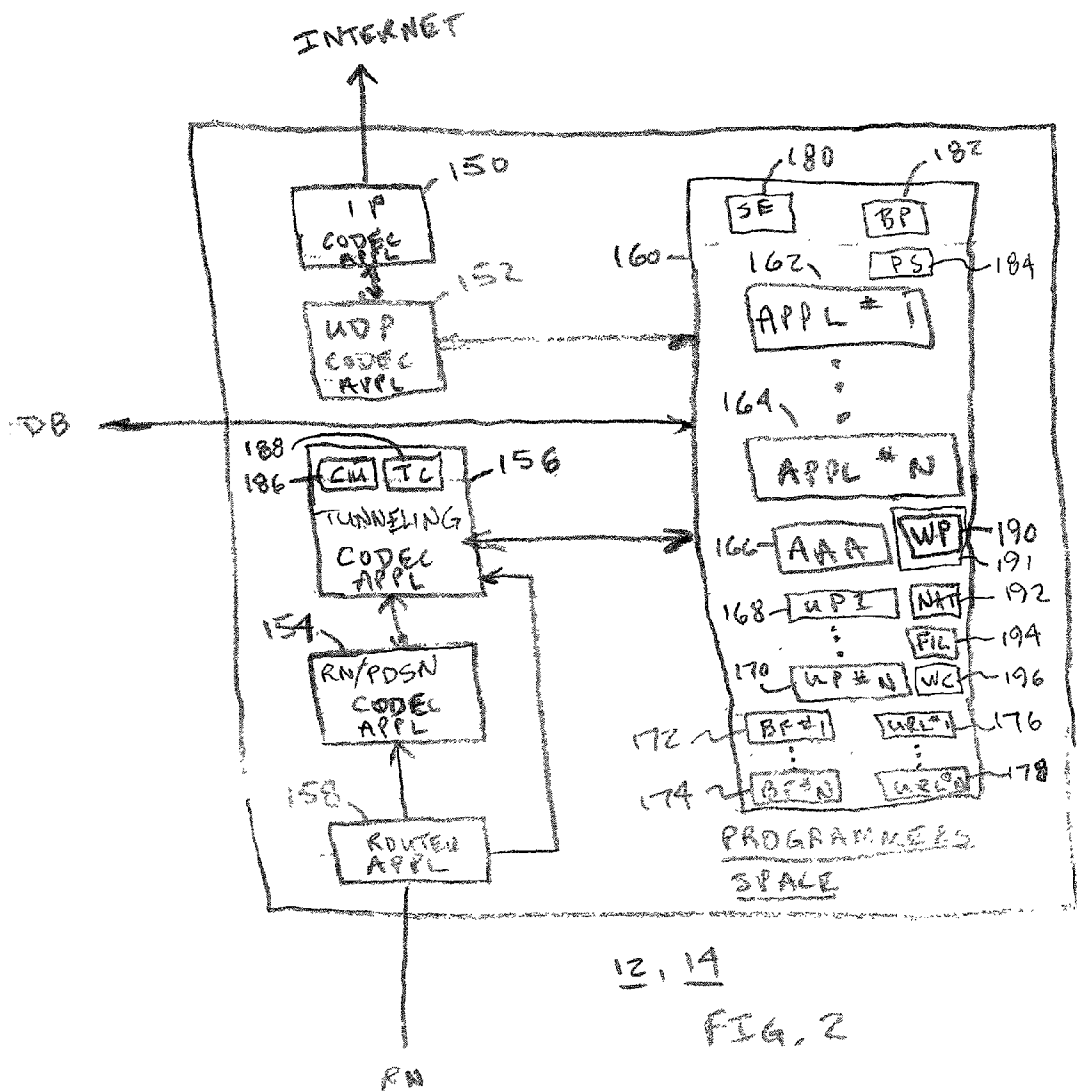 INTERNET
150
IP
CODEC
APPL
152
UDP
CODEC
APPL
DB
188
186
CM
TC
156
TUNNELING
CODEC
APPL
154
RN/PDSN
CODEC
APPL
158
ROUTER
APPL
RN
160
180
SE
182
BP
162
PS
184
APPL # 1
164
APPL # N
166
AAA
WP
190
191
168
UP1
NAT
192
FIL
194
170
UP#N
WC
196
172
BF#1
URL#1
176
174
BF#N
URL#N
178
PROGRAMMERS
SPACE
12, 14
FIG. 2